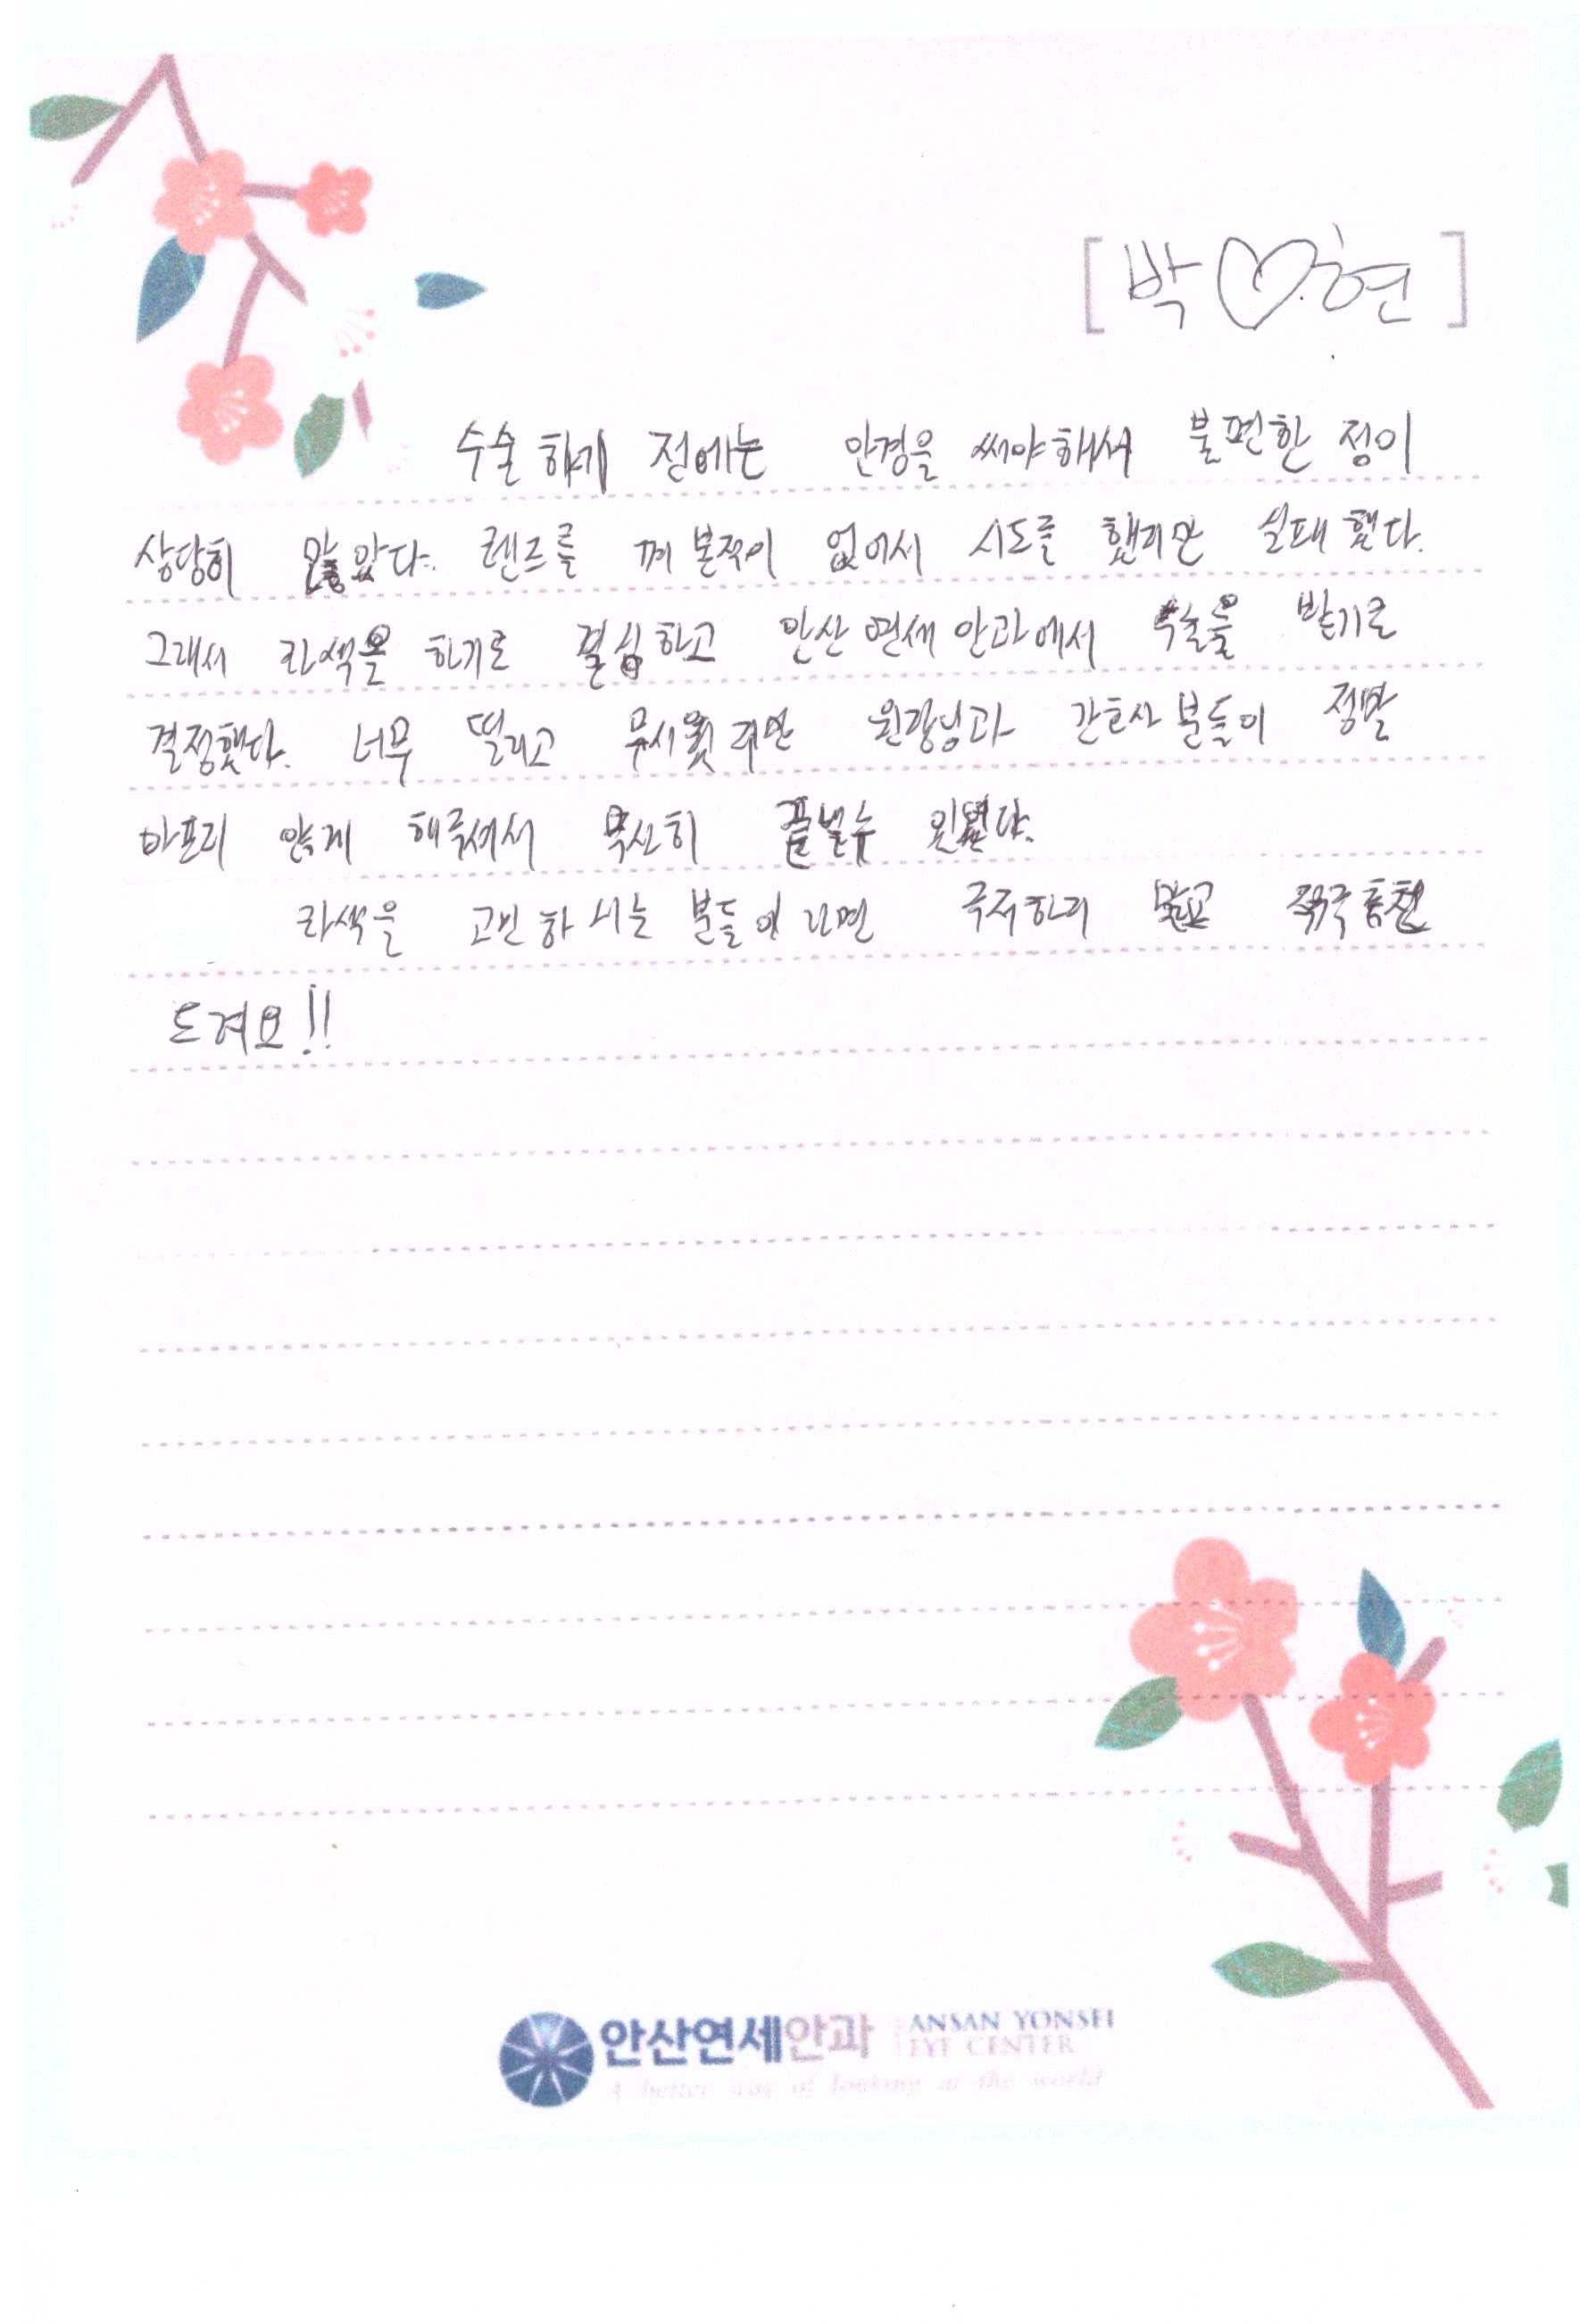 [박♡현]
수술하기 전에는 안경을 써야해서 불편한 점이
상당히 많았다. 렌즈를 껴 본적이 없어서 시도를 했지만 실패했다.
그래서 라섹을 하기로 결심하고 안산연세안과에서 수술을 받기로
결정했다. 너무 떨리고 무서웠지만 원장님과 간호사분들이 정말
아프지 않게 해주셔서 무사히 끝낼수 있었다.
라색을 고민하시는 분들이라면 걱정하지 말고 적극추천
드려요!!
안산연세안과 ANSAN YONSEI
EYE CENTER
A better way of looking at the world